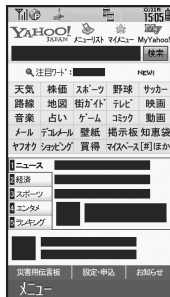 15:05
YAHOO! JAPAN メニューリスト マイメニュー My Yahoo!
検索
注目ワード: NEW!
天気 株価 スポーツ 野球 サッカー
路線 地図 街ガイド テレビ 映画
音楽 占い ゲーム コミック 動画
メール デコメール 壁紙 掲示板 知恵袋
ヤフオク ショッピング 買得 マイスペース [#]ほか
1 ニュース
2 経済
3 スポーツ
4 エンタメ
5 ランキング
災害用伝言板 設定・申込 お知らせ
メニュー